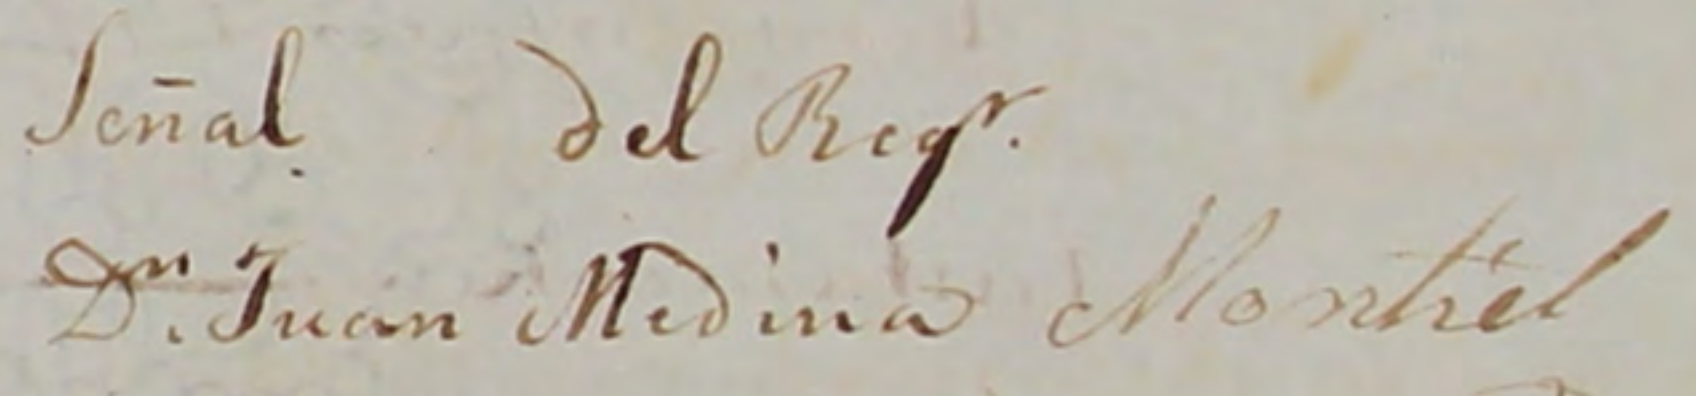 Señal. del Regr.
Dn. Juan Medina Montiel